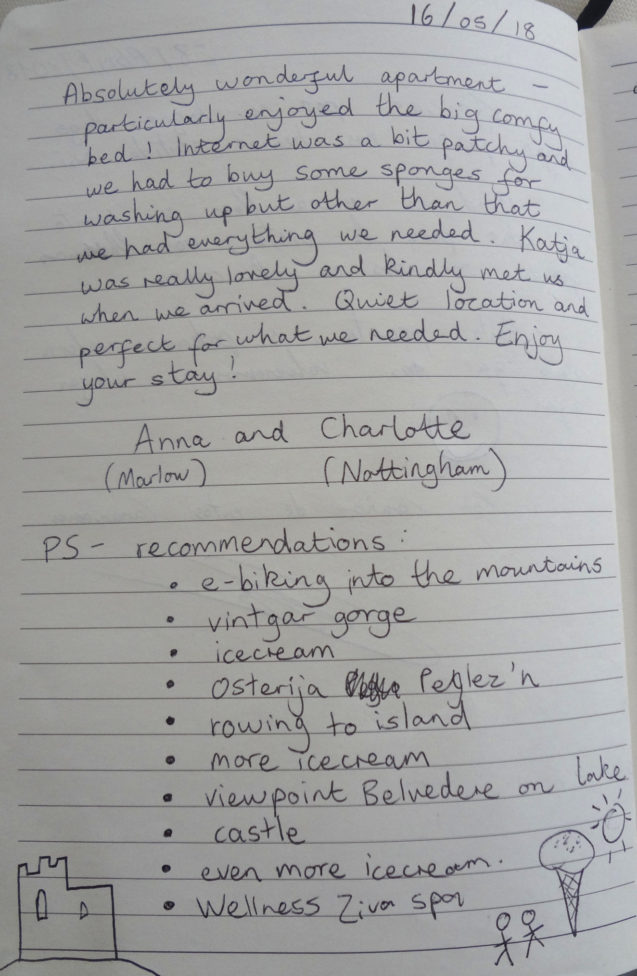 16/05/18
Absolutely wonderful apartment -
particularly enjoyed the big comfy
bed! Internet was a bit patchy and
we had to buy some sponges for
washing up but other than that
we had everything we needed. Katja
was really lovely and kindly met us
when we arrived. Quiet location and
perfect for what we needed. Enjoy
your stay!
Anna and Charlotte
(Marlow) (Nottingham)
PS - recommendations:
• e-biking into the mountains
• vintgar gorge
• icecream
• Osterija Peglez'n
• rowing to island
• more icecream
• viewpoint Belvedere on lake
• castle
• even more icecream.
• Wellness Ziva spa